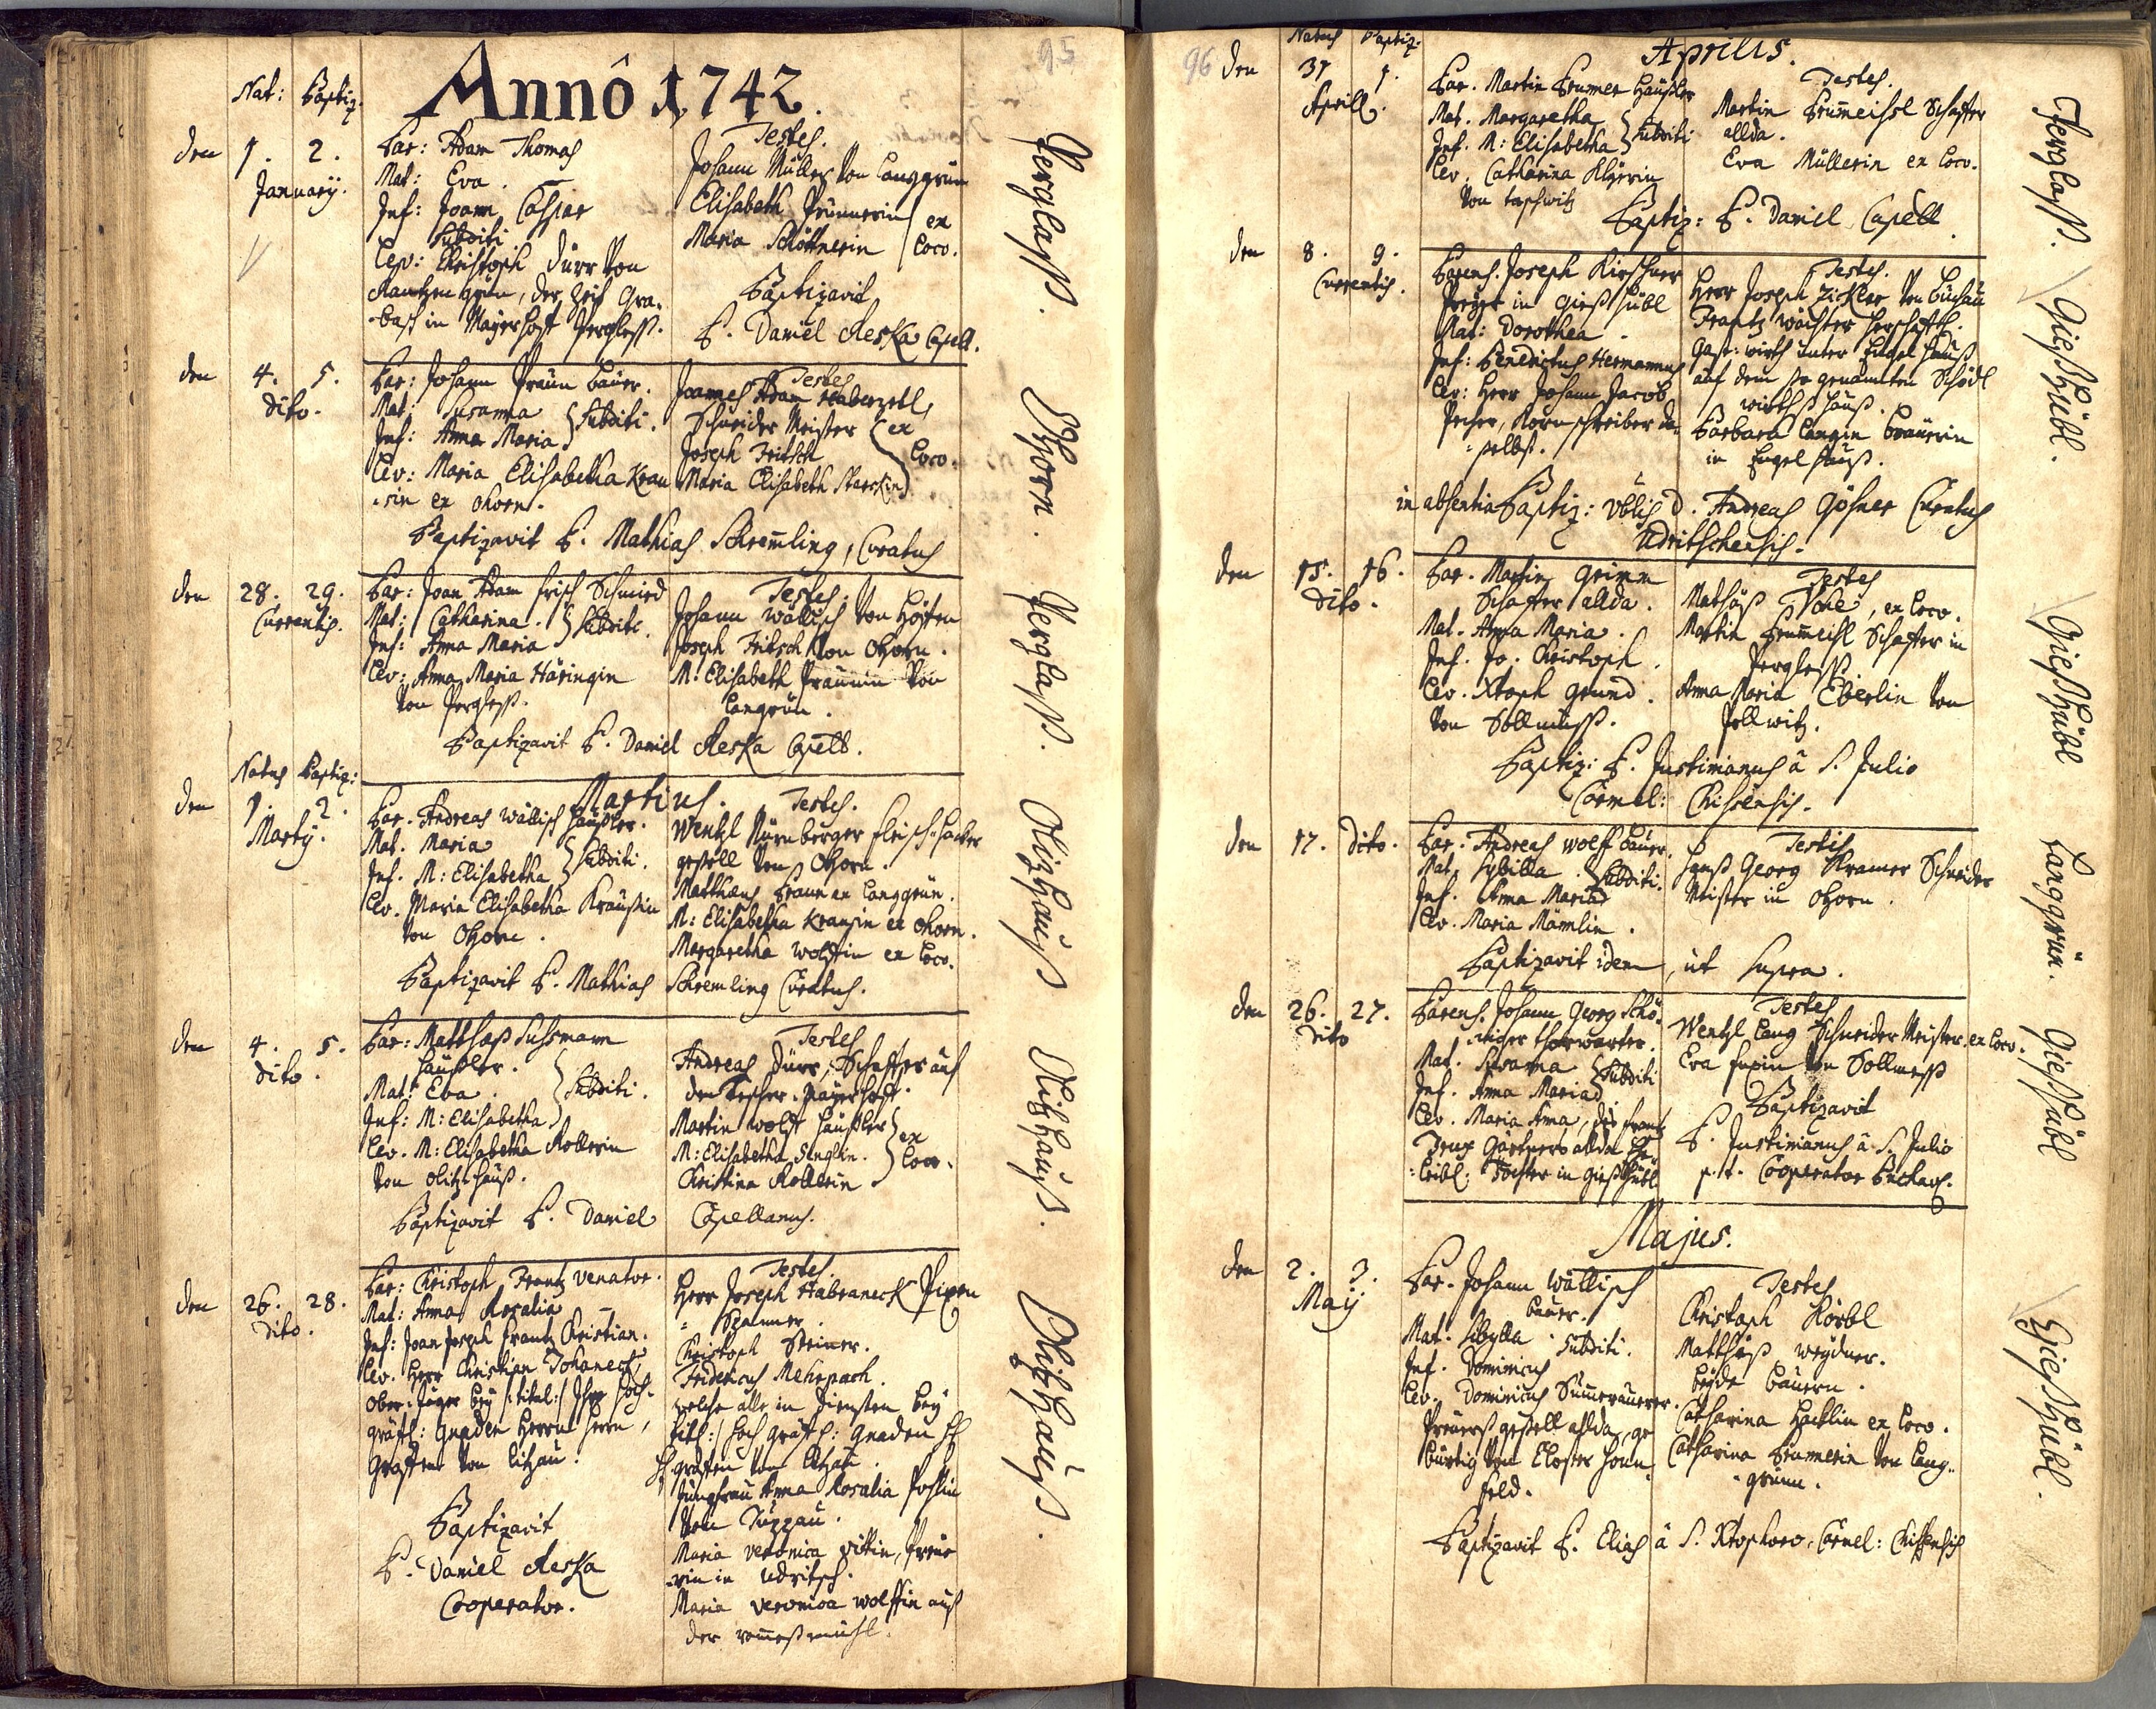 95
Nat: Baptiz.
Annô 1742.
den 1. 2. January.
Par: Adam Thomas
Mat: Eva.
Inf: Joann Caspar
Subditi
Lev: Christoph Dürr von
grün, der Zeit
in Mayerhoff Pergless.
Testes.
Johann Müller von Langgrün
Elisabeth Prünnerin } ex
Maria Schöttnerin } Loco.
Baptizavit
P. Daniel Reska Capell.
Perglass.
den 4. 5. dito.
Par: Johann Praün Baüer.
Mat: Susanna } Subditi.
Inf: Anna Maria
Lev: Maria Elisabetha Krau
sin ex Ohorn.
Testes
Joannes Adam Haberzetl,
Schneider Meister } ex
Joseph Fritsch } Loco.
Maria Elisabeth Starckin
Baptizavit P. Mathias Schremling, Curatus
Ohorn.
den 28. 29. Currentis.
Par: Joan Adam Frisch Schmied
Mat: Catharina. } Subditi.
Inf: Anna Maria
Lev: Anna Maria Häringin
von Pergless.
Testes.
Johann Wällisch von Höfen
Joseph Fritsch von Ohorn.
M: Elisabeth Praünin von
Langrün.
Baptizavit P. Daniel Reska Capell.
Perglass.
Natus Baptiz:
Martius.
den 1. 2. Marty.
Par. Andreas Wällisch Häußler.
Mat. Maria
Inf. M: Elisabetha } Subditi.
Lev. Maria Elisabetha Kraüsin
von Ohorn.
Testes.
Wentzl Nürnberger Fleischhacker
gesell von Ohorn.
Matthæus Braun ex Langgrün.
M: Elisabetha Krausin ex Ohorn.
Margaretha Wolffin ex Loco.
Baptizavit P. Mathias Schremling Curatus.
Olizhauß
den 4. 5. dito.
Par: Matthæs Sussmann
Häußler.
Mat: Eva. } Subditi.
Inf: M: Elisabetha
Lev. M: Elisabetha Kollerin
von Olitzhauß.
Testes
Andreas Dürr, Schaffer auf
den Mayerhoff.
Martin Wolff Häußler } ex
M: Elisabetha Senglin. } Loco.
Christina Kollerin
Baptizavit P. Daniel Capellanus.
Olizhauß.
den 26. 28. dito.
Par: Christoph Frantz Venator.
Mat: Anna Rosalia
Inf: Joan Joseph Frantz Christian.
Lev. Herr Christian Johaneck,
Ober-Jäger bey /: titul :/ Ihro Hoch-
gräfl: Gnaden Herrn Herrn,
Graffen von Litzau.
Baptizavit
P. Daniel Reska
Cooperator.
Testes.
Herr Joseph Habraneck Pixen
Spanner.
Christoph Steiner.
Fridericus Mehrpach.
welche alle in Diensten bey
titl:/ Hoch gräfl: Gnaden H
H Graffen von Litzau.
Jungfrau Anna Rosalia Poslin
von Duppau.
Maria Veronica Vittin, Preüe
rin in Udritsch.
Maria Veronica Wolffin auß
der
Olizhauß.
96
Natus Baptiz:
Aprilis.
den 31 1. Aprill.
Par. Martin Brumer Häußler
Mat. Margaretha } Subditi
Inf. M: Elisabetha
Lev. Catharina
von
Testes.
Martin Brumeissl Schaffer
allda.
Eva Müllerin ex Loco.
Baptiz: P. Daniel Capell.
Perglass.
den 8. 9. Currentis.
Parens. Joseph Kirschner
in Gießhübl
Mat: Dorothea.
Inf: Benedictus Hermannus
Lev: Herr Johann Jacob
Pecher, Kornschreiber da-
selbst.
Testes.
Herr Joseph Zickler von Buchau
Frantz Wächter herschaftl.
Gast-wirth unter Engelhauß
auf dem so genannten Schödl
wirthshauß.
Barbara Langin Bräuerin
in Engelhauß.
in absentia Baptiz: D. Andreas Gösner Curatus
Udritschensis.
Gießhübl.
den 15. 16. dito.
Par. Martin Grimm
Schaffer allda.
Mat. Anna Maria.
Inf. Jo. Christoph.
Lev. Xtoph Grund.
von Sollmuß.
Testes
Mathäß Vohe, ex Loco.
Martin Brumeissl Schaffer in
Pergless.
Anna Maria Eberlin von
Zollwitz.
Baptiz: P. Justinianus â S. Julio
Carmel: Chisensis.
Gießhübl
den 17. dito.
Par. Andreas Wolff Bauer.
Mat. Sybilla. } Subditi.
Inf. Anna Maria
Lev. Maria Mämlin.
Testis
Hanß Georg Kramer Schneider
Meister in Ohorn.
Baptizavit idem, ut supra.
Langgrün.
den 26. 27. dito
Parens. Johann Georg Schö-
niger Thorwarter.
Mat. Susanna } Subditi
Inf. Anna Maria
Lev. Maria Anna, des Frantz
Gärtners allda
leibl: Tochter in Gießhübl
Testes
Wentzl Lang Schneider Meister. ex Loco.
Eva von Sollmeß
Baptizavit
P. Justinianus â S. Julio
p.t. Cooperator Buchav.
Gießhübl
Majus.
den 2. 3. Maij
Par. Johann Wällisch
Bauer.
Mat. Sibylla. Subditi.
Inf. Dominicus
Lev. Dominicus
Preüers gesell allda, ge
bürtig von Closter
feld.
Testes
Christoph Körbl
Matthäß Weydner.
beyde Bauern.
Catharina Hacklin ex Loco.
Catharina Brumerin von Lang-
grünn.
Baptizavit P. Elias â S. Xtophoro, Carmel: Chissensis
Gießhübl.